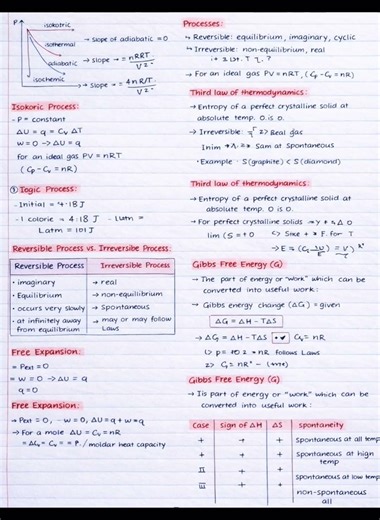 P
isokotric
isothermal
adiabatic
isochemic
→ slope of adiabatic = 0
→ slope → = nRRT / V²
→ slope → = 4nR/T / V²
Isokoric Process
- P = constant
ΔU = q = Cv ΔT
w = 0 → ΔU = q
for an ideal gas PV = nRT
(Cp - Cv = nR)
① Iogic Process:
- Initial = 4·18 J
- 1 calorie = 4·18 J - 1 atm =
Latm = 101 J
Reversible Process vs. Irreversibe Process:
Reversible Process
Irreversible Process
• imaginary
→ real
• Equilibrium
→ non-equilibrium
• occurs very slowly
→ Spontaneous
• at infinitely away from equilibrium
→ may or may follow Laws
Free Expansion:
= Pext = 0
= w = 0 → ΔU = q
q = 0
Free Expansion:
→ Pext = 0, - w = 0, ΔU = q + w = q
→ For a mole ΔU = Cv = nR
/ moldar heat capacity
Processes:
↳ Reversible: equilibrium, imaginary, cyclic
↳ Irreversible: non-equilibrium, real
→ For an ideal gas PV = nRT, (Cp - Cv = nR)
Third law of thermodynamics:
→ Entropy of a perfect crystalline solid at
absolute temp. O is 0.
→ Irreversible: Real gac
Sam at Spontaneous
· Example · S(graphite) < S(diamond)
Third law of thermodynamics:
→ Entropy of a perfect crystalline solid at
absolute temp. O is 0.
→ For perfect crystalline solids
for T
Gibbs Free Energy (G)
→ The part of energy or "work" which can be
converted into useful work:
→ Gibbs energy change (ΔG) = given
ΔG = ΔH - TΔS
→ ΔG = ΔH - TΔS Cv = nR
= nR follows Laws
Gibbs Free Energy (G)
→ Iis part of energy or "work" which can be
converted into useful work:
Case
sign of ΔH
ΔS
spontaneity
+
+
+
spontaneous at all temp
+
+
+
spontaneous at high temp
II
+
+
spontaneous at low temp
III
+
+
non-spontaneous all